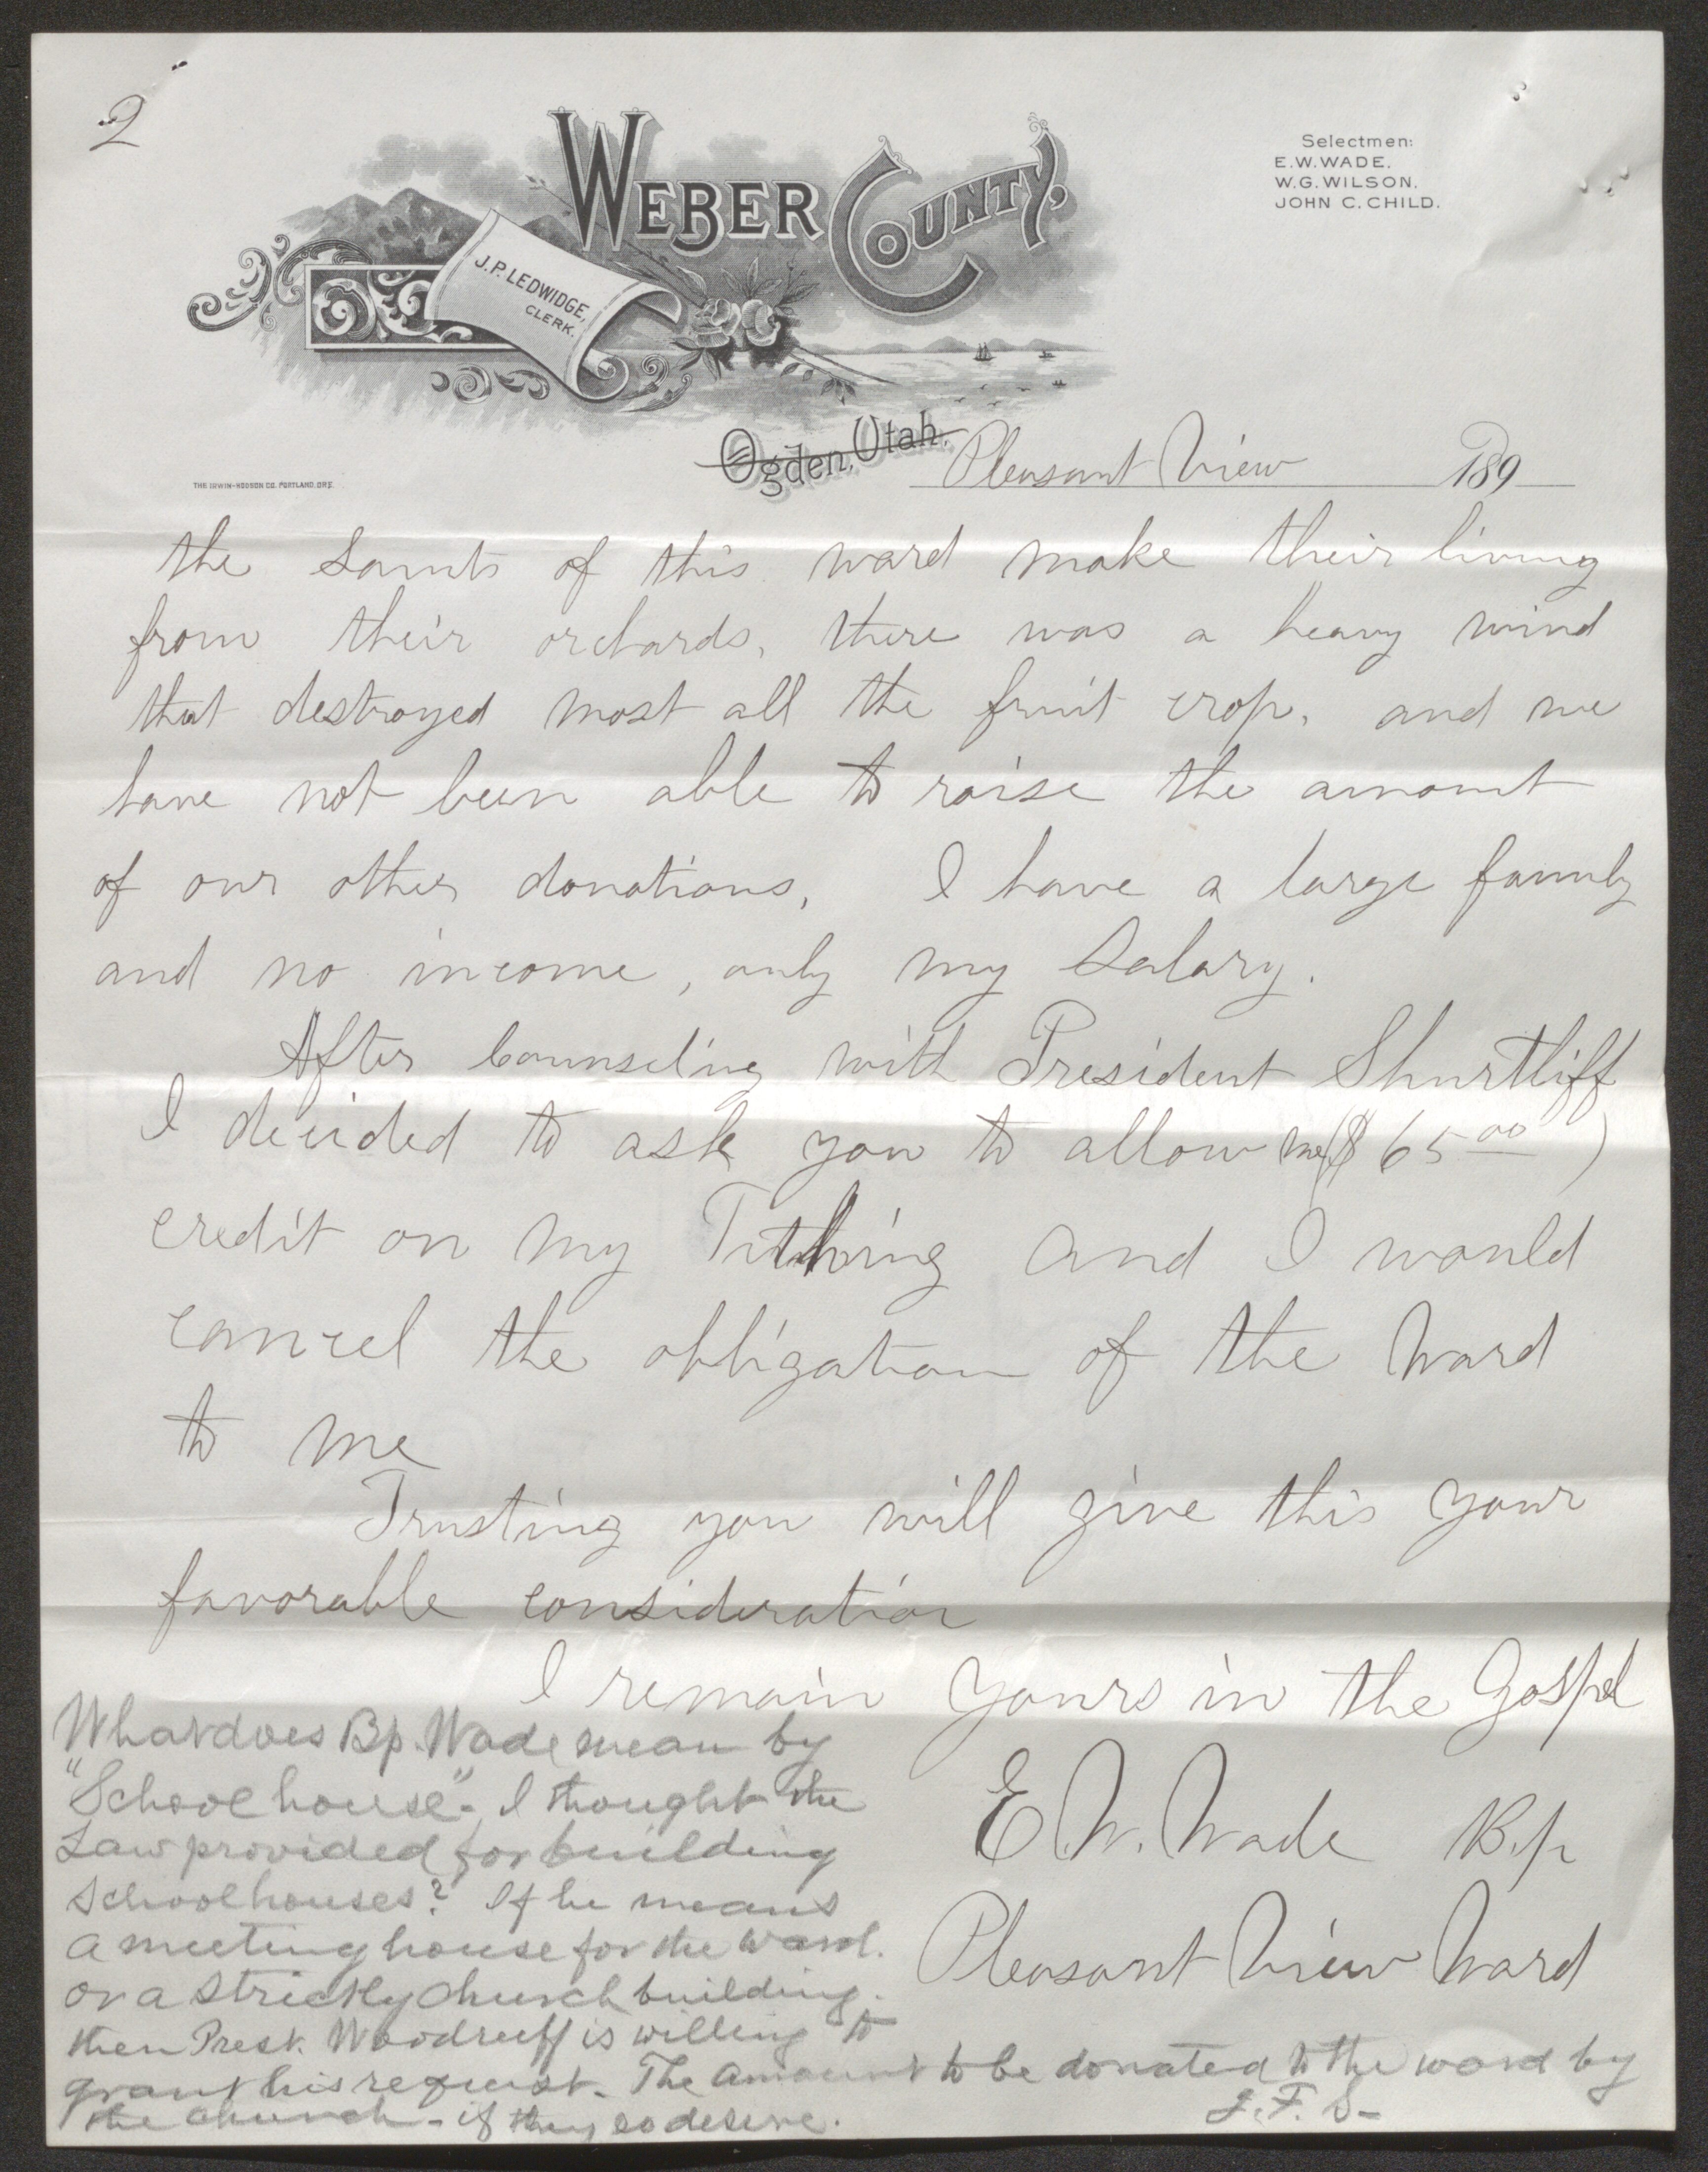 2
WEBER COUNTY,
Selectmen:
E.W. WADE.
W.G. WILSON.
JOHN C. CHILD.
J.P. LEDWIDGE,
CLERK.
Ogden, Utah. Pleasant View 189
THE IRWIN-HODSON CO. PORTLAND, ORE.
the Saints of this ward make their living
from their orchards, there was a heavy wind
that destroyed most all the fruit crop, and we
have not been able to raise the amount
of our other donations, I have a large family
and no income, only my Salary.
After Counseling with President Shurtliff
I decided to ask you to allow me ($65 00)
credit on my Tithing and I would
cancel the obligation of the Ward
to me
Trusting you will give this your
favorable consideration
I remain yours in the Gospel
E W. Wade Bp
Pleasant View Ward
What does Bp. Wade mean by
"School house"- I thought the
Law provided for building
schoolhouses? If he means
a meeting house for the ward.
or a strictly church building.
then Prest. Woodruff is willing to
grant his request. The amount to be donated to the ward by
the church - if they so desire.
J. F. S-